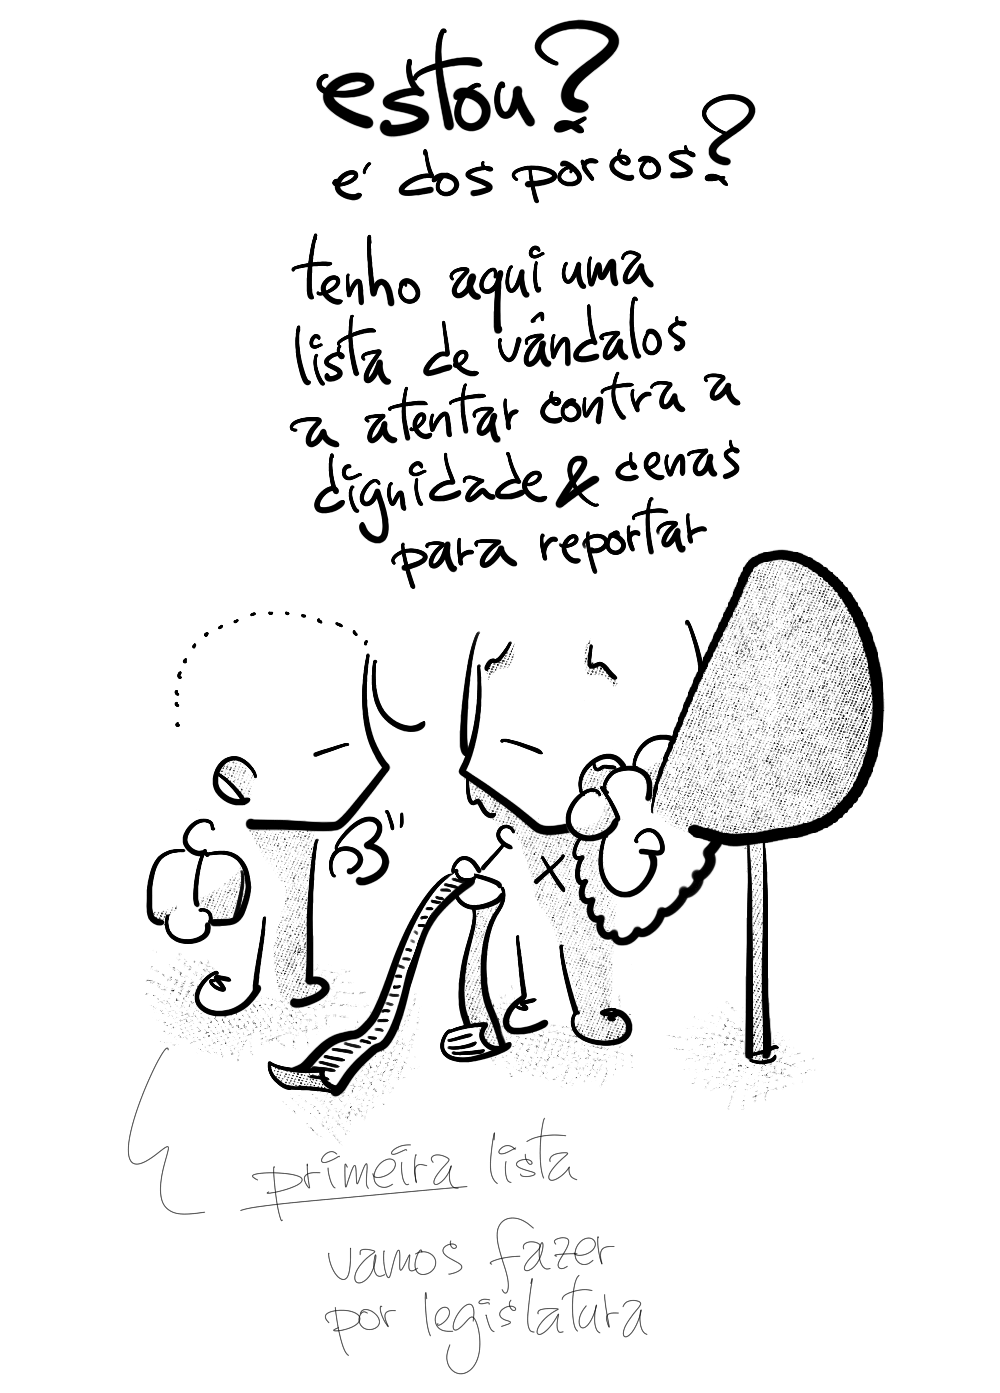 estou?
é dos porcos?
tenho aqui uma
lista de vândalos
a atentar contra a
dignidade & cenas
para reportar
primeira lista
vamos fazer
por legislatura